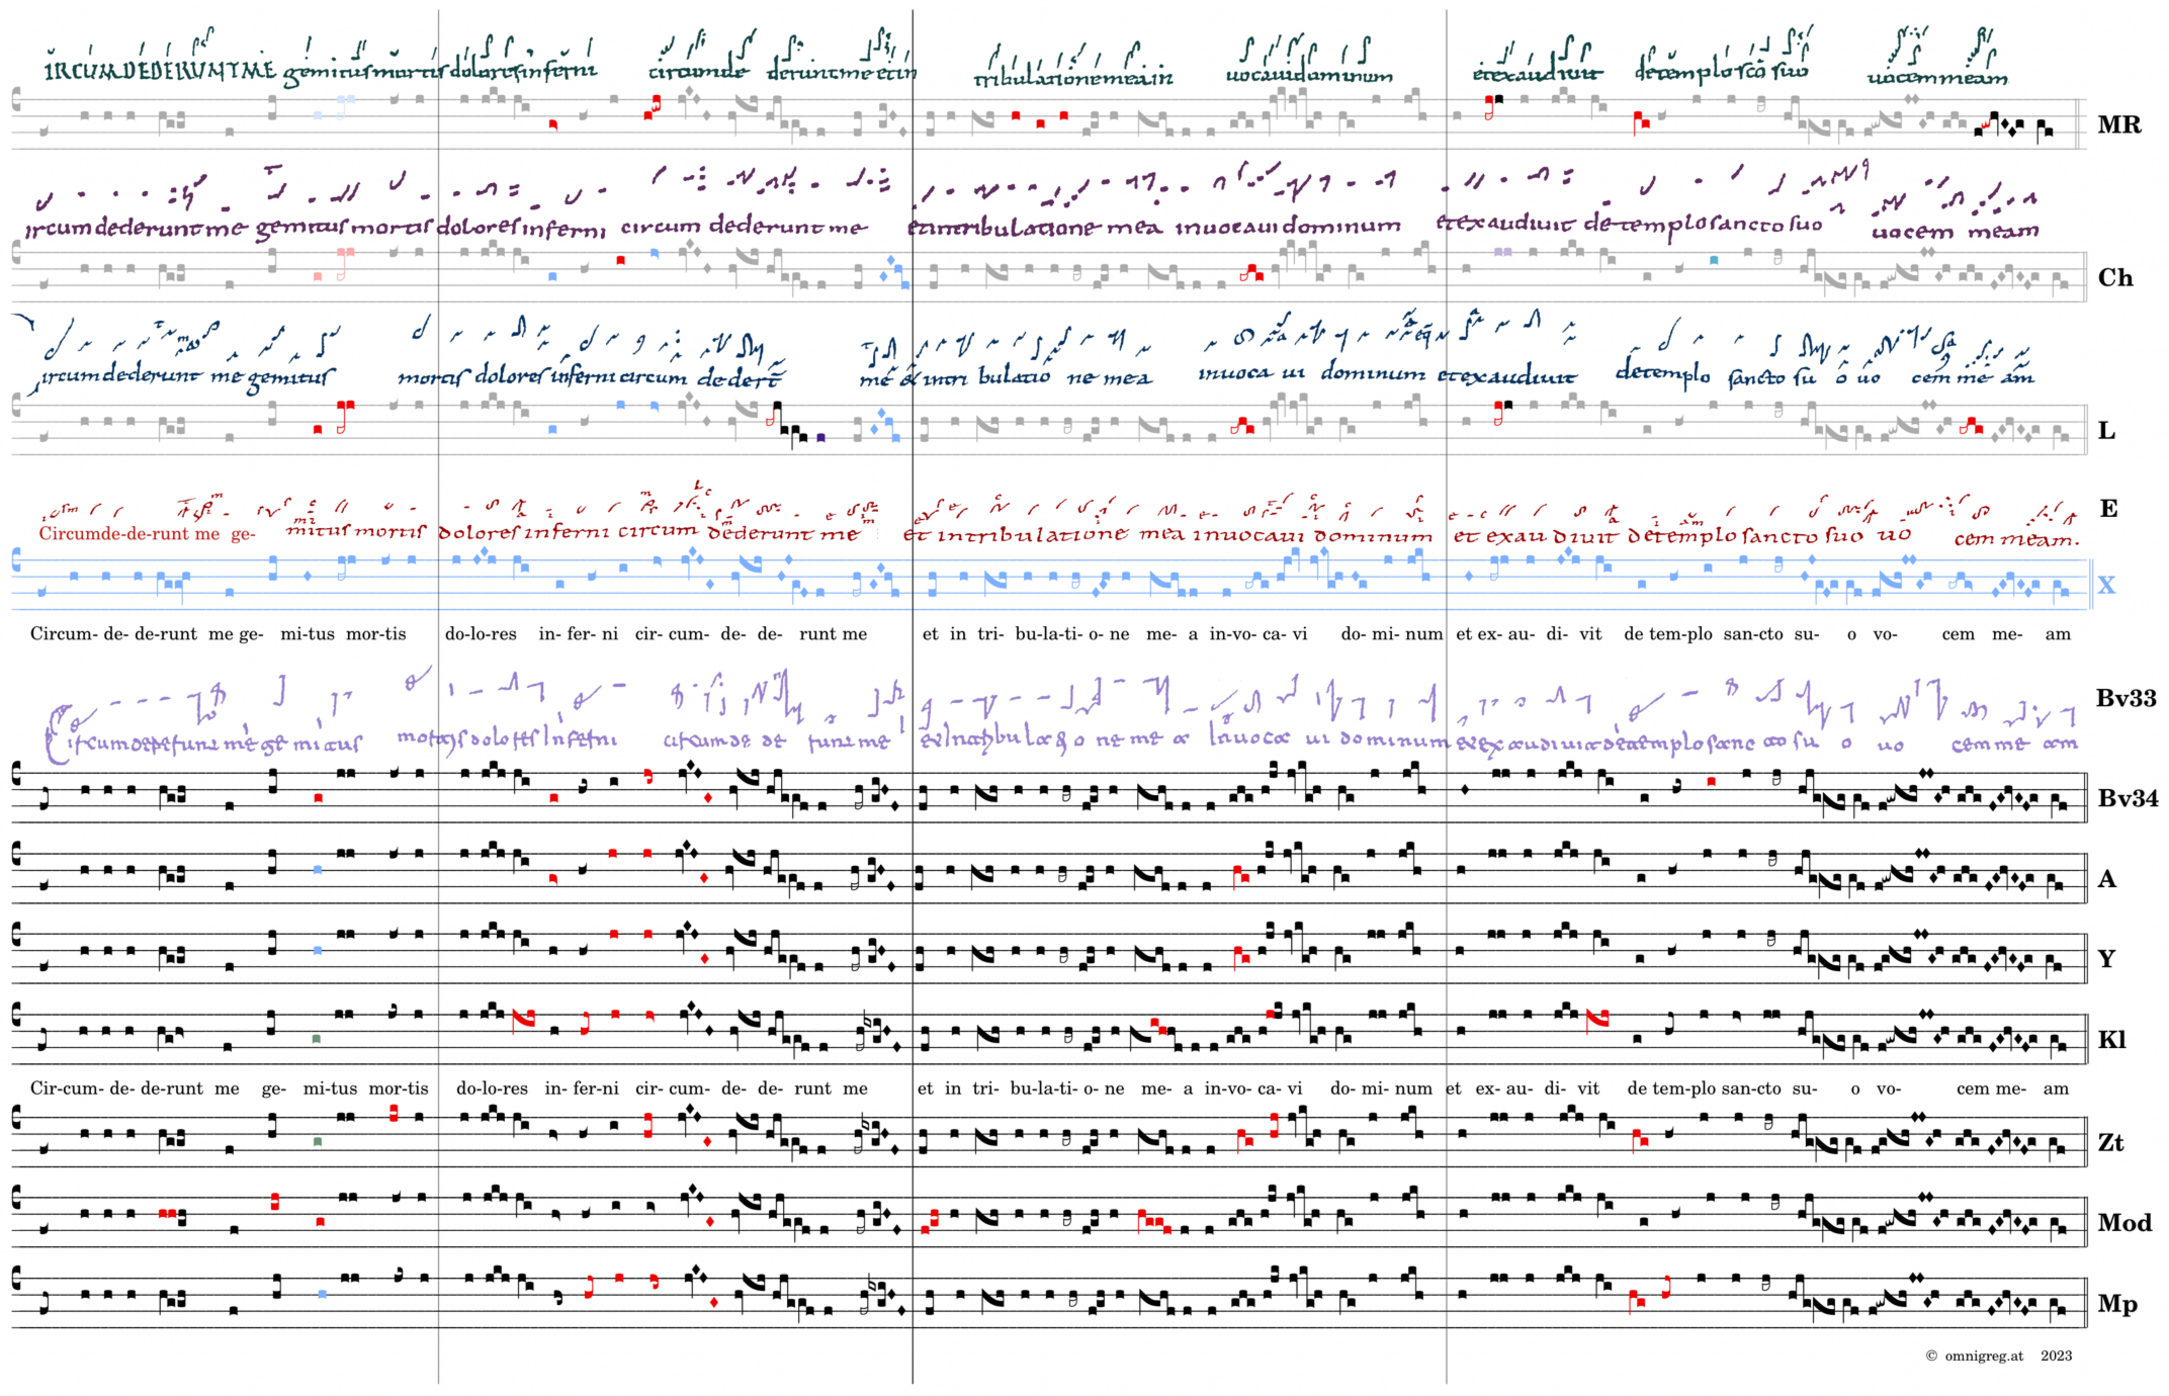 IRCUMDEDERUNTME gemitusmortis doloresinferni circumde deruntme etin tribulationemeain uocauidominum etexaudiuit detemplosco suo uocemmeam
MR
ircumdederuntme gemitus mortis dolores inferni circum dederunt me etintribulatione mea inuocaui dominum etexaudiuit detemplosancto suo uocem meam
Ch
ircumdederunt me gemitus mortis dolores inferni circum dedert me et intri bulatio ne mea inuoca ui dominum etexaudiuit detemplo sancto su o uo cem me am
L
E
Circumde-de-runt me ge- mitus mortis dolores inferni circum dederunt me et intribulatione mea inuocaui dominum et exau diuit detemplo sancto suo uo cem meam.
X
Circum- de- de-runt me ge- mi-tus mor-tis do-lo-res in- fer- ni cir- cum- de- de- runt me et in tri- bu-la-ti- o- ne me- a in-vo- ca- vi do- mi- num et ex- au- di- vit de tem-plo san-cto su- o vo- cem me- am
Bv33
Bv34
A
Y
Kl
Cir-cum- de- de-runt me ge- mi-tus mor-tis do-lo-res in- fer-ni cir- cum- de- de- runt me et in tri- bu-la-ti- o- ne me- a in-vo- ca- vi do- mi- num et ex- au- di- vit de tem-plo san-cto su- o vo- cem me- am
Zt
Mod
Mp
© omnigreg.at 2023